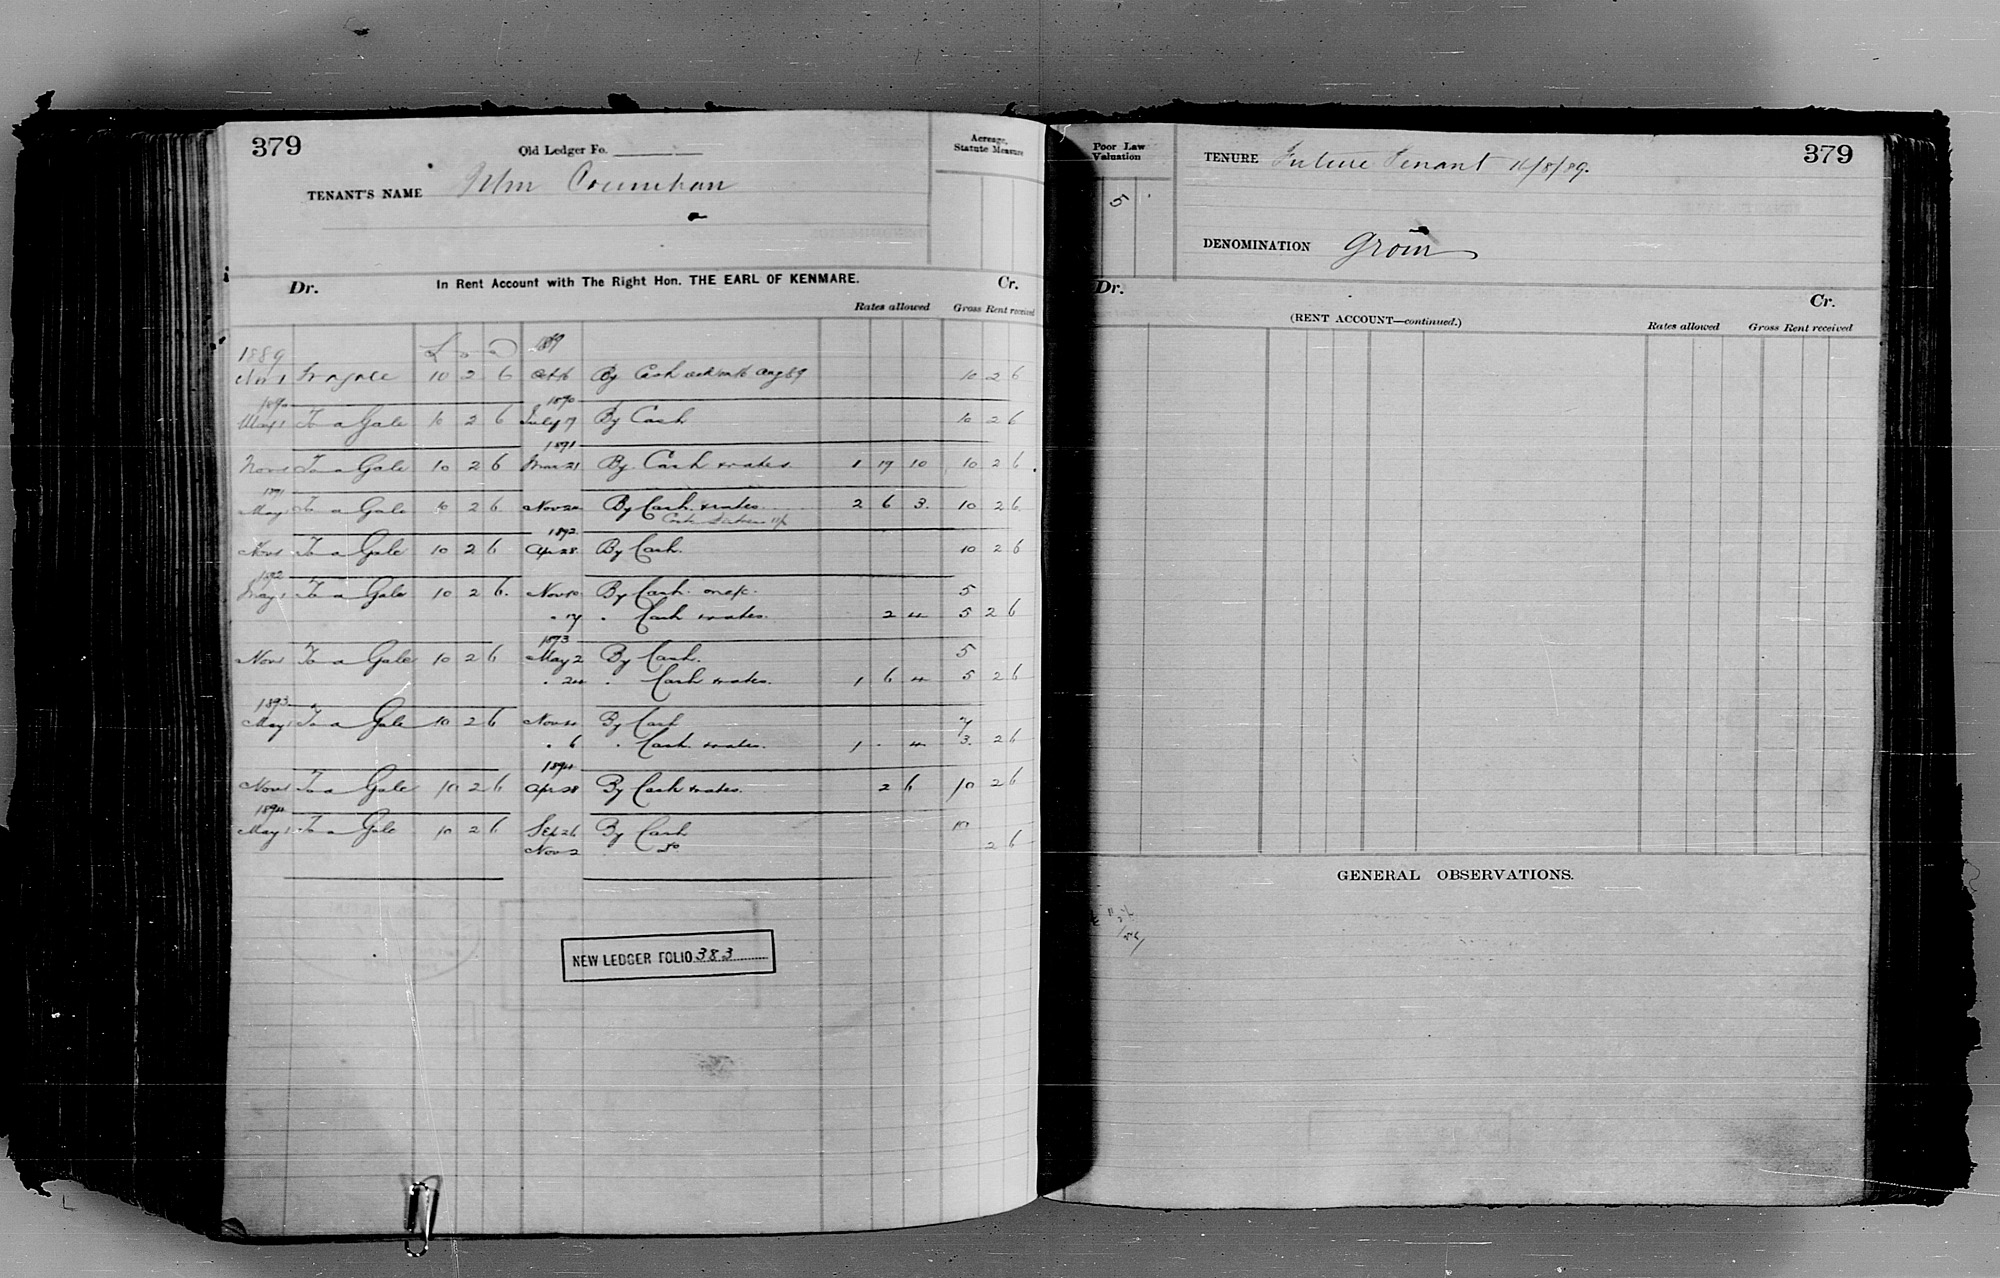 379
Old Ledger Fo.
TENANT'S NAME Wm Counihan
Acreage, Statute Measure
Dr. In Rent Account with The Right Hon. THE EARL OF KENMARE. Cr.
Rates allowed Gross Rent received
1889 £ s d 89
Nov 1 To a Gale 10 2 6 Oct 16 By Cash 10 2 6
1890 1890
May 1 To a Gale 10 2 6 July 7 By Cash 10 2 6
1891
Nov 1 To a Gale 10 2 6 Mar 21 By Cash & rates 1 19 10 10 2 6
1891
May 1 To a Gale 10 2 6 Nov 20 By Cash & rates 2 6 3 10 2 6
1892
Nov 1 To a Gale 10 2 6 Apr 28 By Cash. 10 2 6
1892
May 1 To a Gale 10 2 6 Nov 10 By Cash on a/c. 5
" 17 " Cash & rates. 2 4 5 2 6
1893
Nov 1 To a Gale 10 2 6 May 2 By Cash. 5
" 24 " Cash & rates. 1 6 4 5 2 6
1893
May 1 To a Gale 10 2 6 Nov 4 By Cash 7
" 6 " Cash & rates. 1 - 4 3 2 6
1894
Nov 1 To a Gale 10 2 6 Apr 28 By Cash & rates. 2 6 10 2 6
1894
May 1 To a Gale 10 2 6 Sep 26 By Cash 10
Nov 2 Do 2 6
NEW LEDGER FOLIO 383
Poor Law Valuation
5
TENURE Future Tenant 16/8/89.
379
DENOMINATION Groin
Dr. Cr.
(RENT ACCOUNT—continued.)
Rates allowed Gross Rent received
GENERAL OBSERVATIONS.